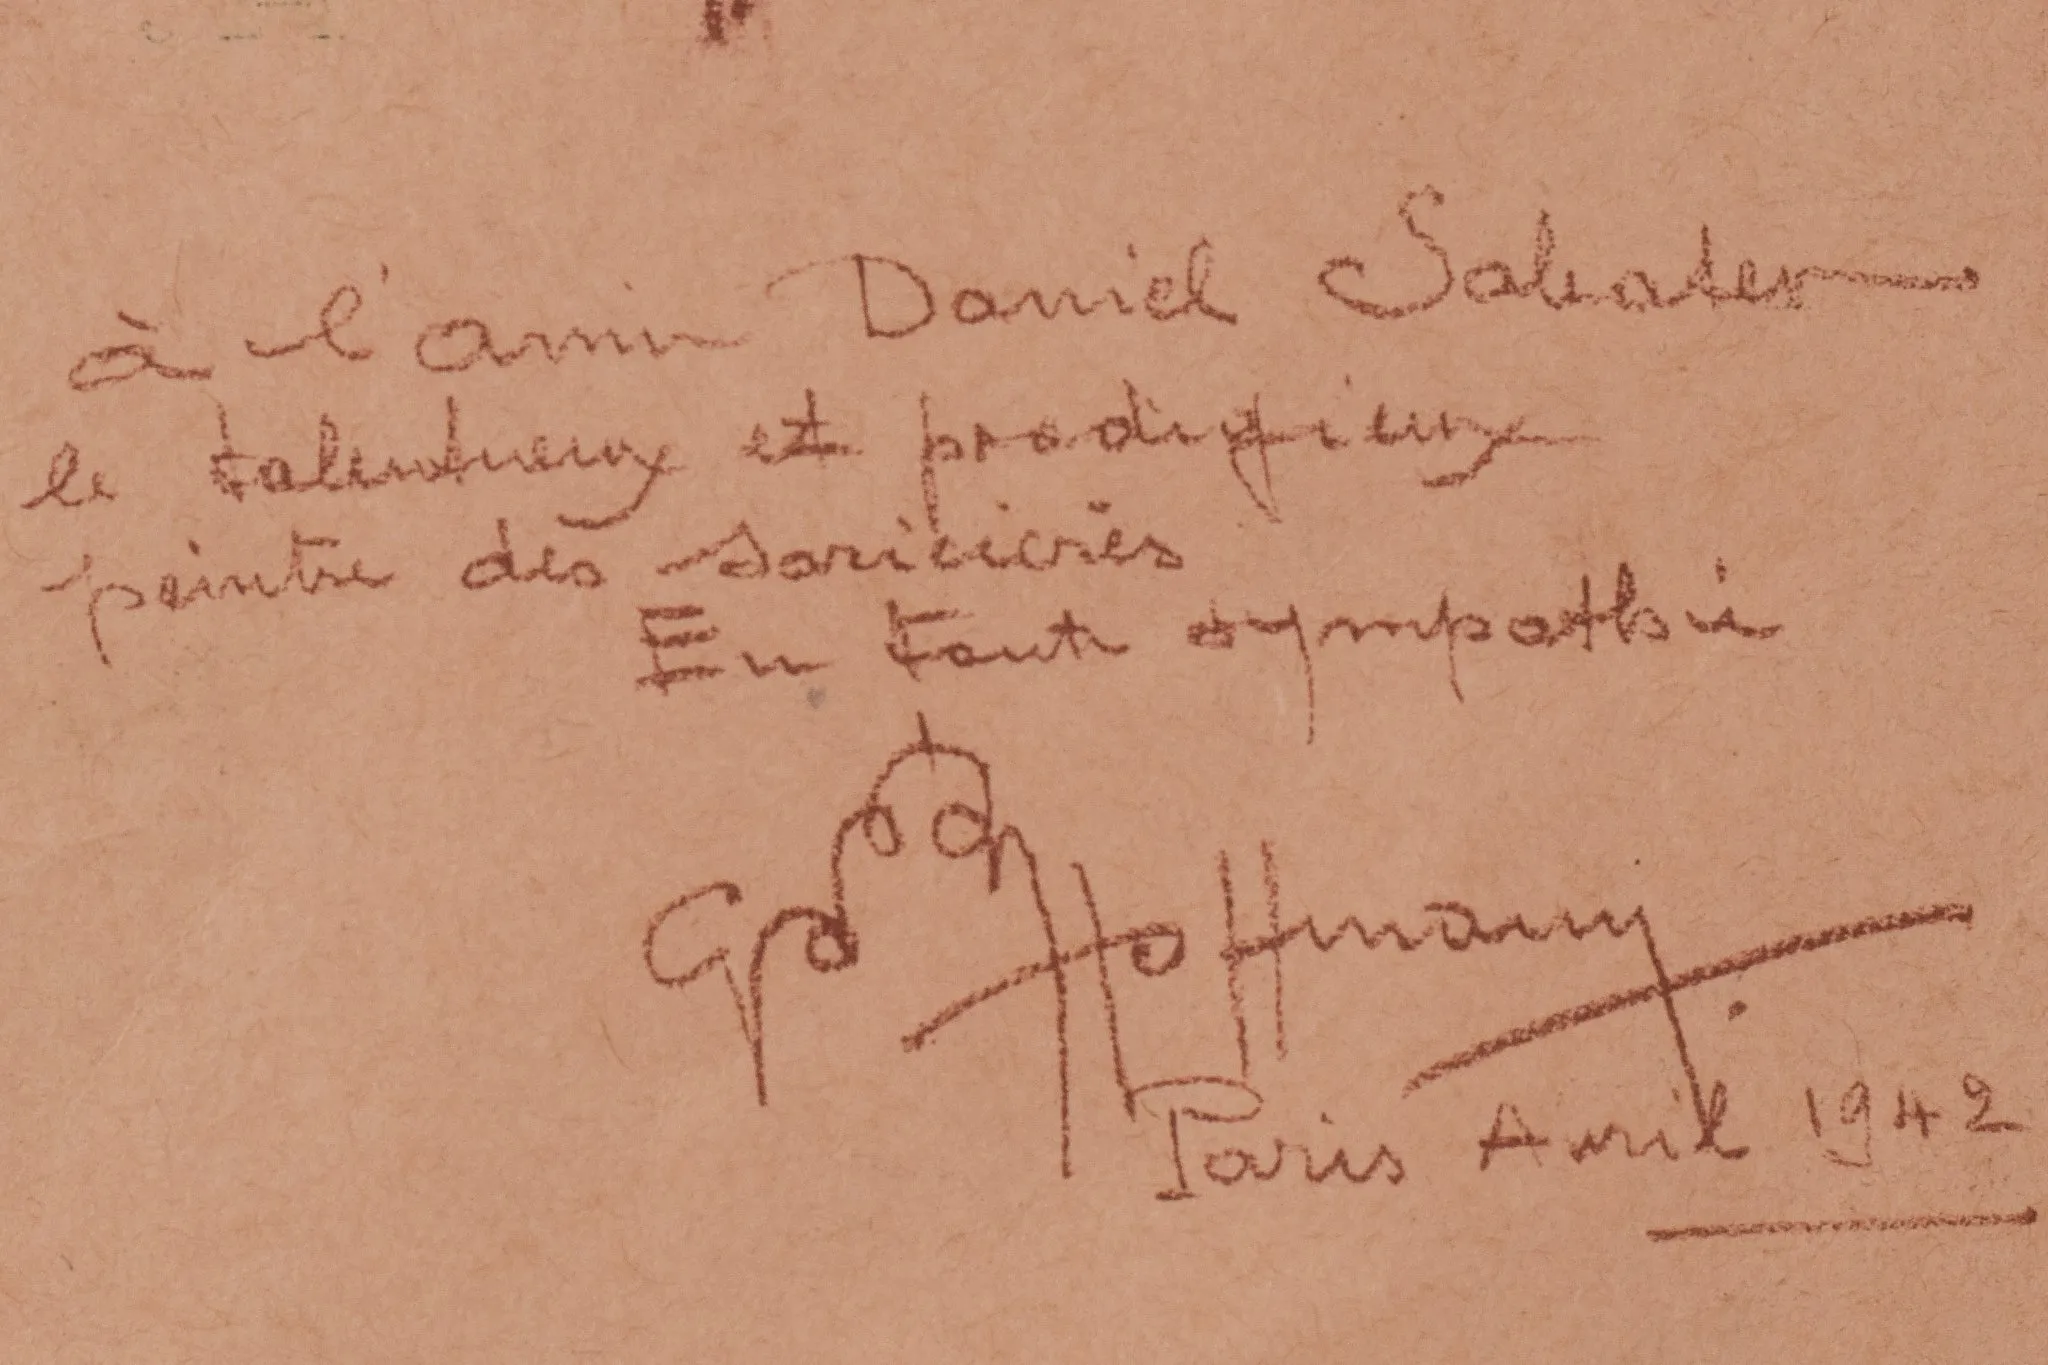 à l'ami Daniel Sabater
le talentueux et prodigieux
peintre des soricières
En toute sympathie
Hoffmann
Paris Avril 1942